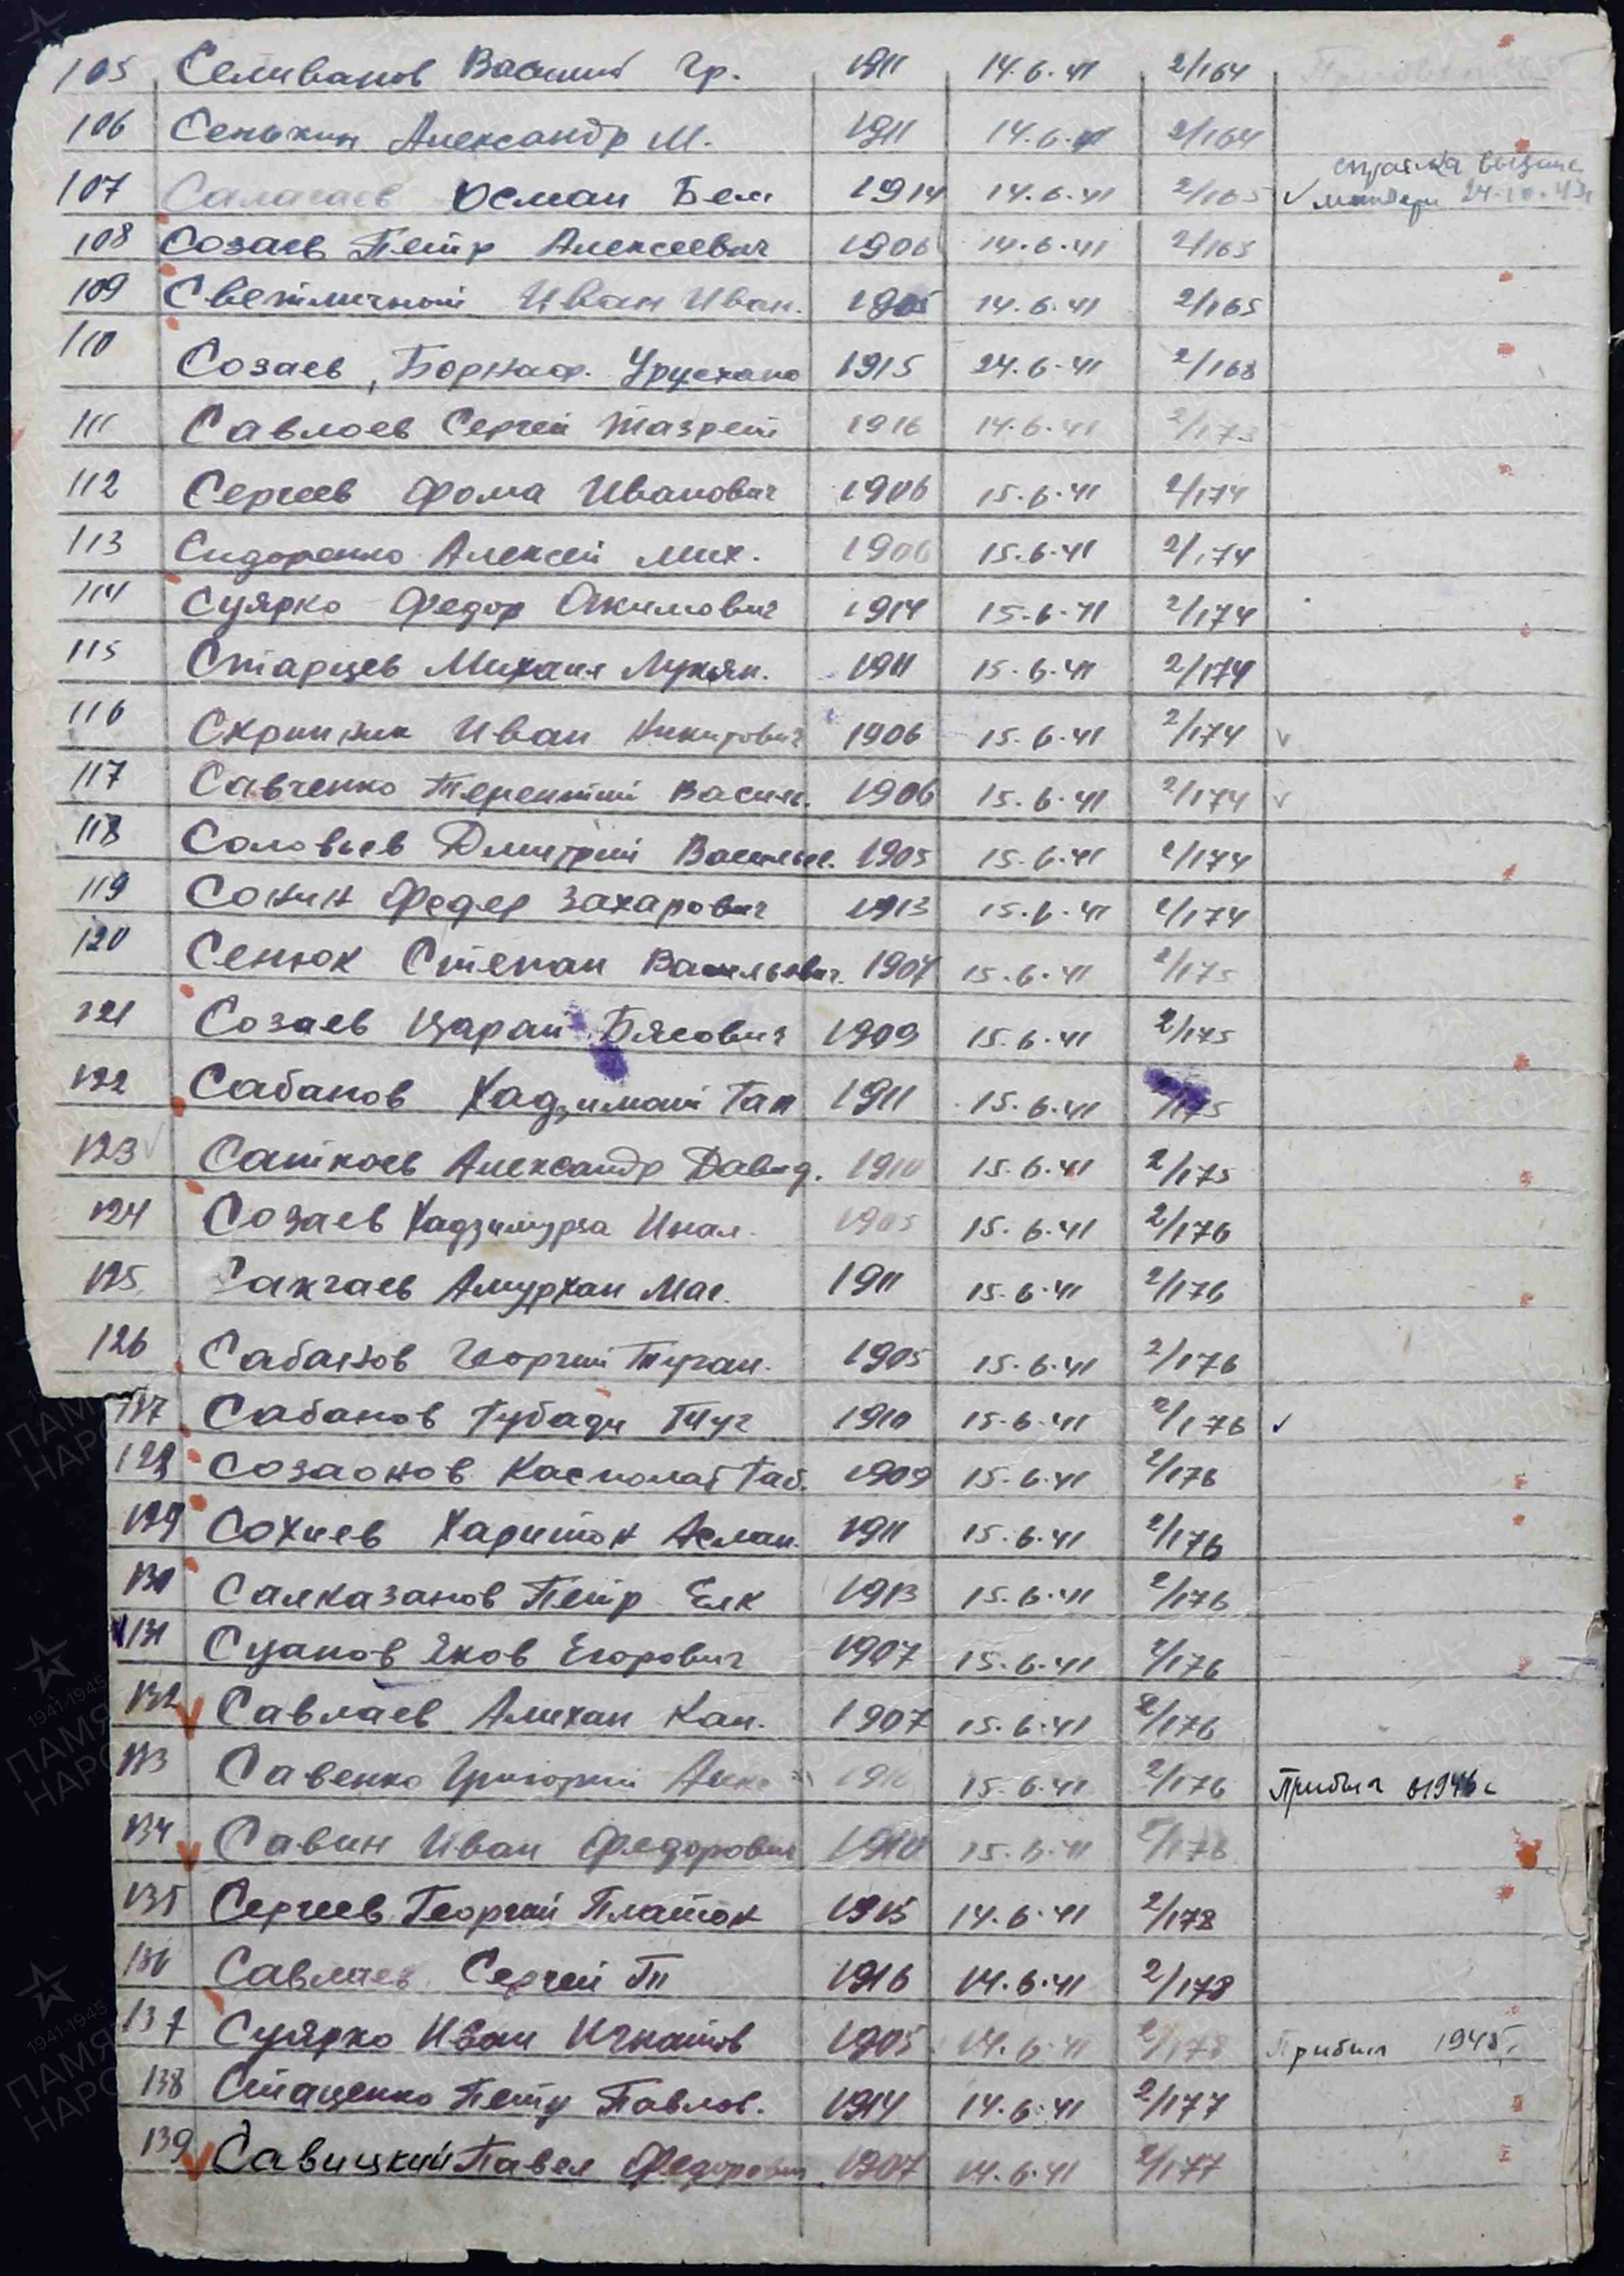 105 Селиванов Василий Гр. 1911 14.6.41 2/164
106 Сенькин Александр М. 1911 14.6.41 2/164
справка выдана
107 Осман Бек 1914 14.6.41 2/165 24.10.43
108 Созаев Петр Алексеевич 1906 14.6.41 2/165
109 Светличный Иван Иван. 1905 14.6.41 2/165
110 Созаев, Урусхано 1915 24.6.41 2/168
111 Савлоев Сергей Тазрет 1916 14.6.41 2/173
112 Сергеев Фома Иванович 1906 15.6.41 2/174
113 Сидоренко Алексей Мих. 1906 15.6.41 2/174
114 Суярко Федор Акимович 1914 15.6.41 2/174
115 Старцев Михаил Лукян. 1911 15.6.41 2/174
116 Скрипник Иван Никитович 1906 15.6.41 2/174
117 Савченко Терентий Василь. 1906 15.6.41 2/174
118 Соловьев Дмитрий Васильев. 1905 15.6.41 2/174
119 Сонин Федер Захарович 1913 15.6.41 2/174
120 Сенюк Степан Васильевич. 1907 15.6.41 2/175
121 Созаев Царай Бясович 1909 15.6.41 2/175
122 Сабанов Хадзимат Гап 1911 15.6.41
123 Саткоев Александр Давид. 1910 15.6.41 2/175
124 Созаев Хадзимурза Инал. 1905 15.6.41 2/176
125 Амурхан Маг. 1911 15.6.41 2/176
126 Сабанов Георгий Туган. 1905 15.6.41 2/176
127 Сабанов Губади Туг 1910 15.6.41 2/176
128 Созаонов Касполат Габ. 1909 15.6.41 2/176
129 Сохиев Харитон Аслан. 1911 15.6.41 2/176
130 Салказанов Петр Елк 1913 15.6.41 2/176
131 Суанов Яков Егорович 1907 15.6.41 2/176
132 Савлаев Алихан Кан. 1907 15.6.41 2/176
133 Савенко Григорий 15.6.41 2/176 Прибыл в 1946 г
134 Савин Иван Федорович 1910 15.6.41 2/176
135 Сергеев Георгий Платон 1915 14.6.41 2/178
136 Савлаев Сергей Тп 1916 14.6.41 2/178
137 Суярко Иван Игнатов 1905 14.6.41 2/178 Прибыл 1945 г.
138 Стаценко Петр Павлов. 1914 14.6.41 2/177
139 Савицкий Павел Федорович 1907 14.6.41 2/177